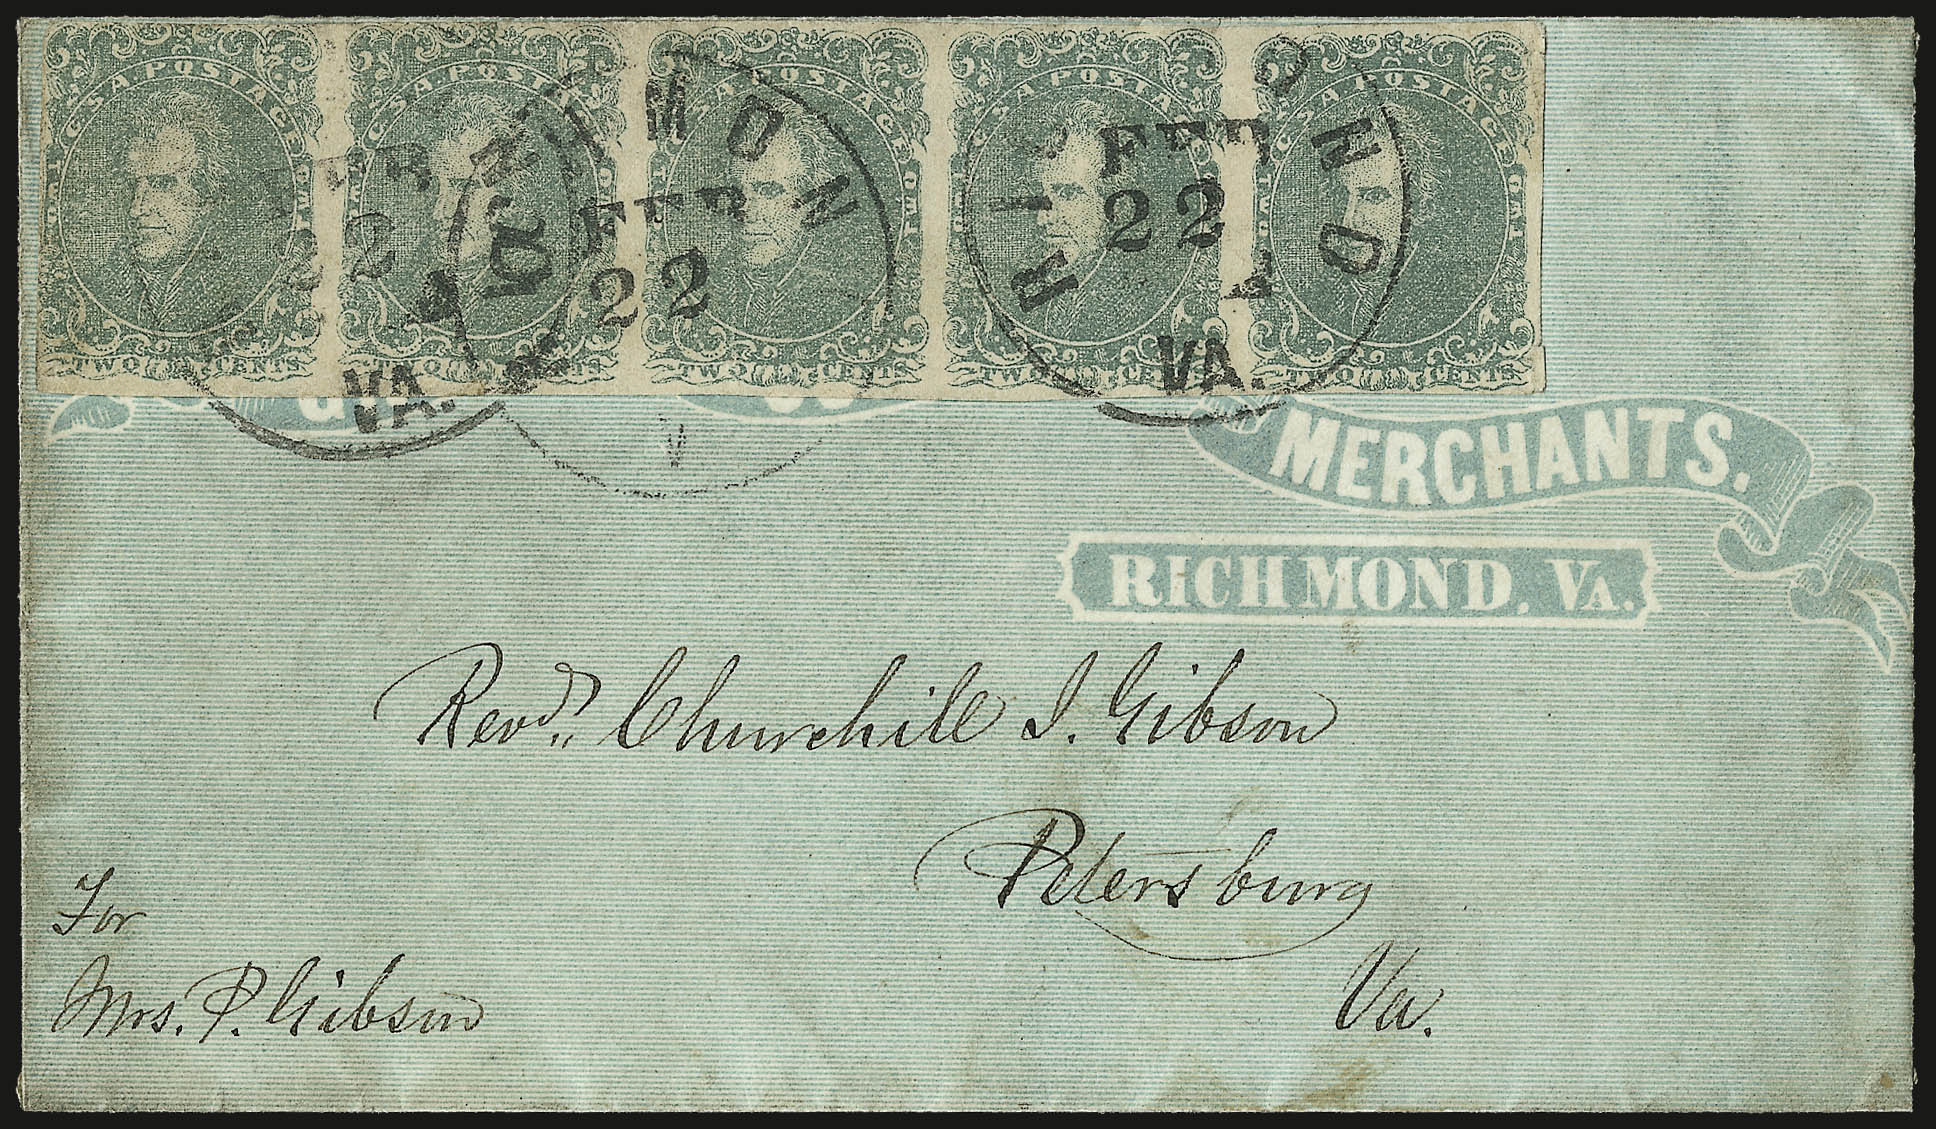 C.S.A. POSTAGE TWO CENTS
C.S.A. POSTAGE TWO CENTS
C.S.A. POSTAGE TWO CENTS
C.S.A. POSTAGE TWO CENTS
C.S.A. POSTAGE TWO CENTS
FEB 22 VA.
RICHMOND FEB 22 V
RICHMOND FEB 22 VA.
MERCHANTS.
RICHMOND, VA.
Revd. Churchill J. Gibson
Petersburg
Va.
For
Mrs. P. Gibson